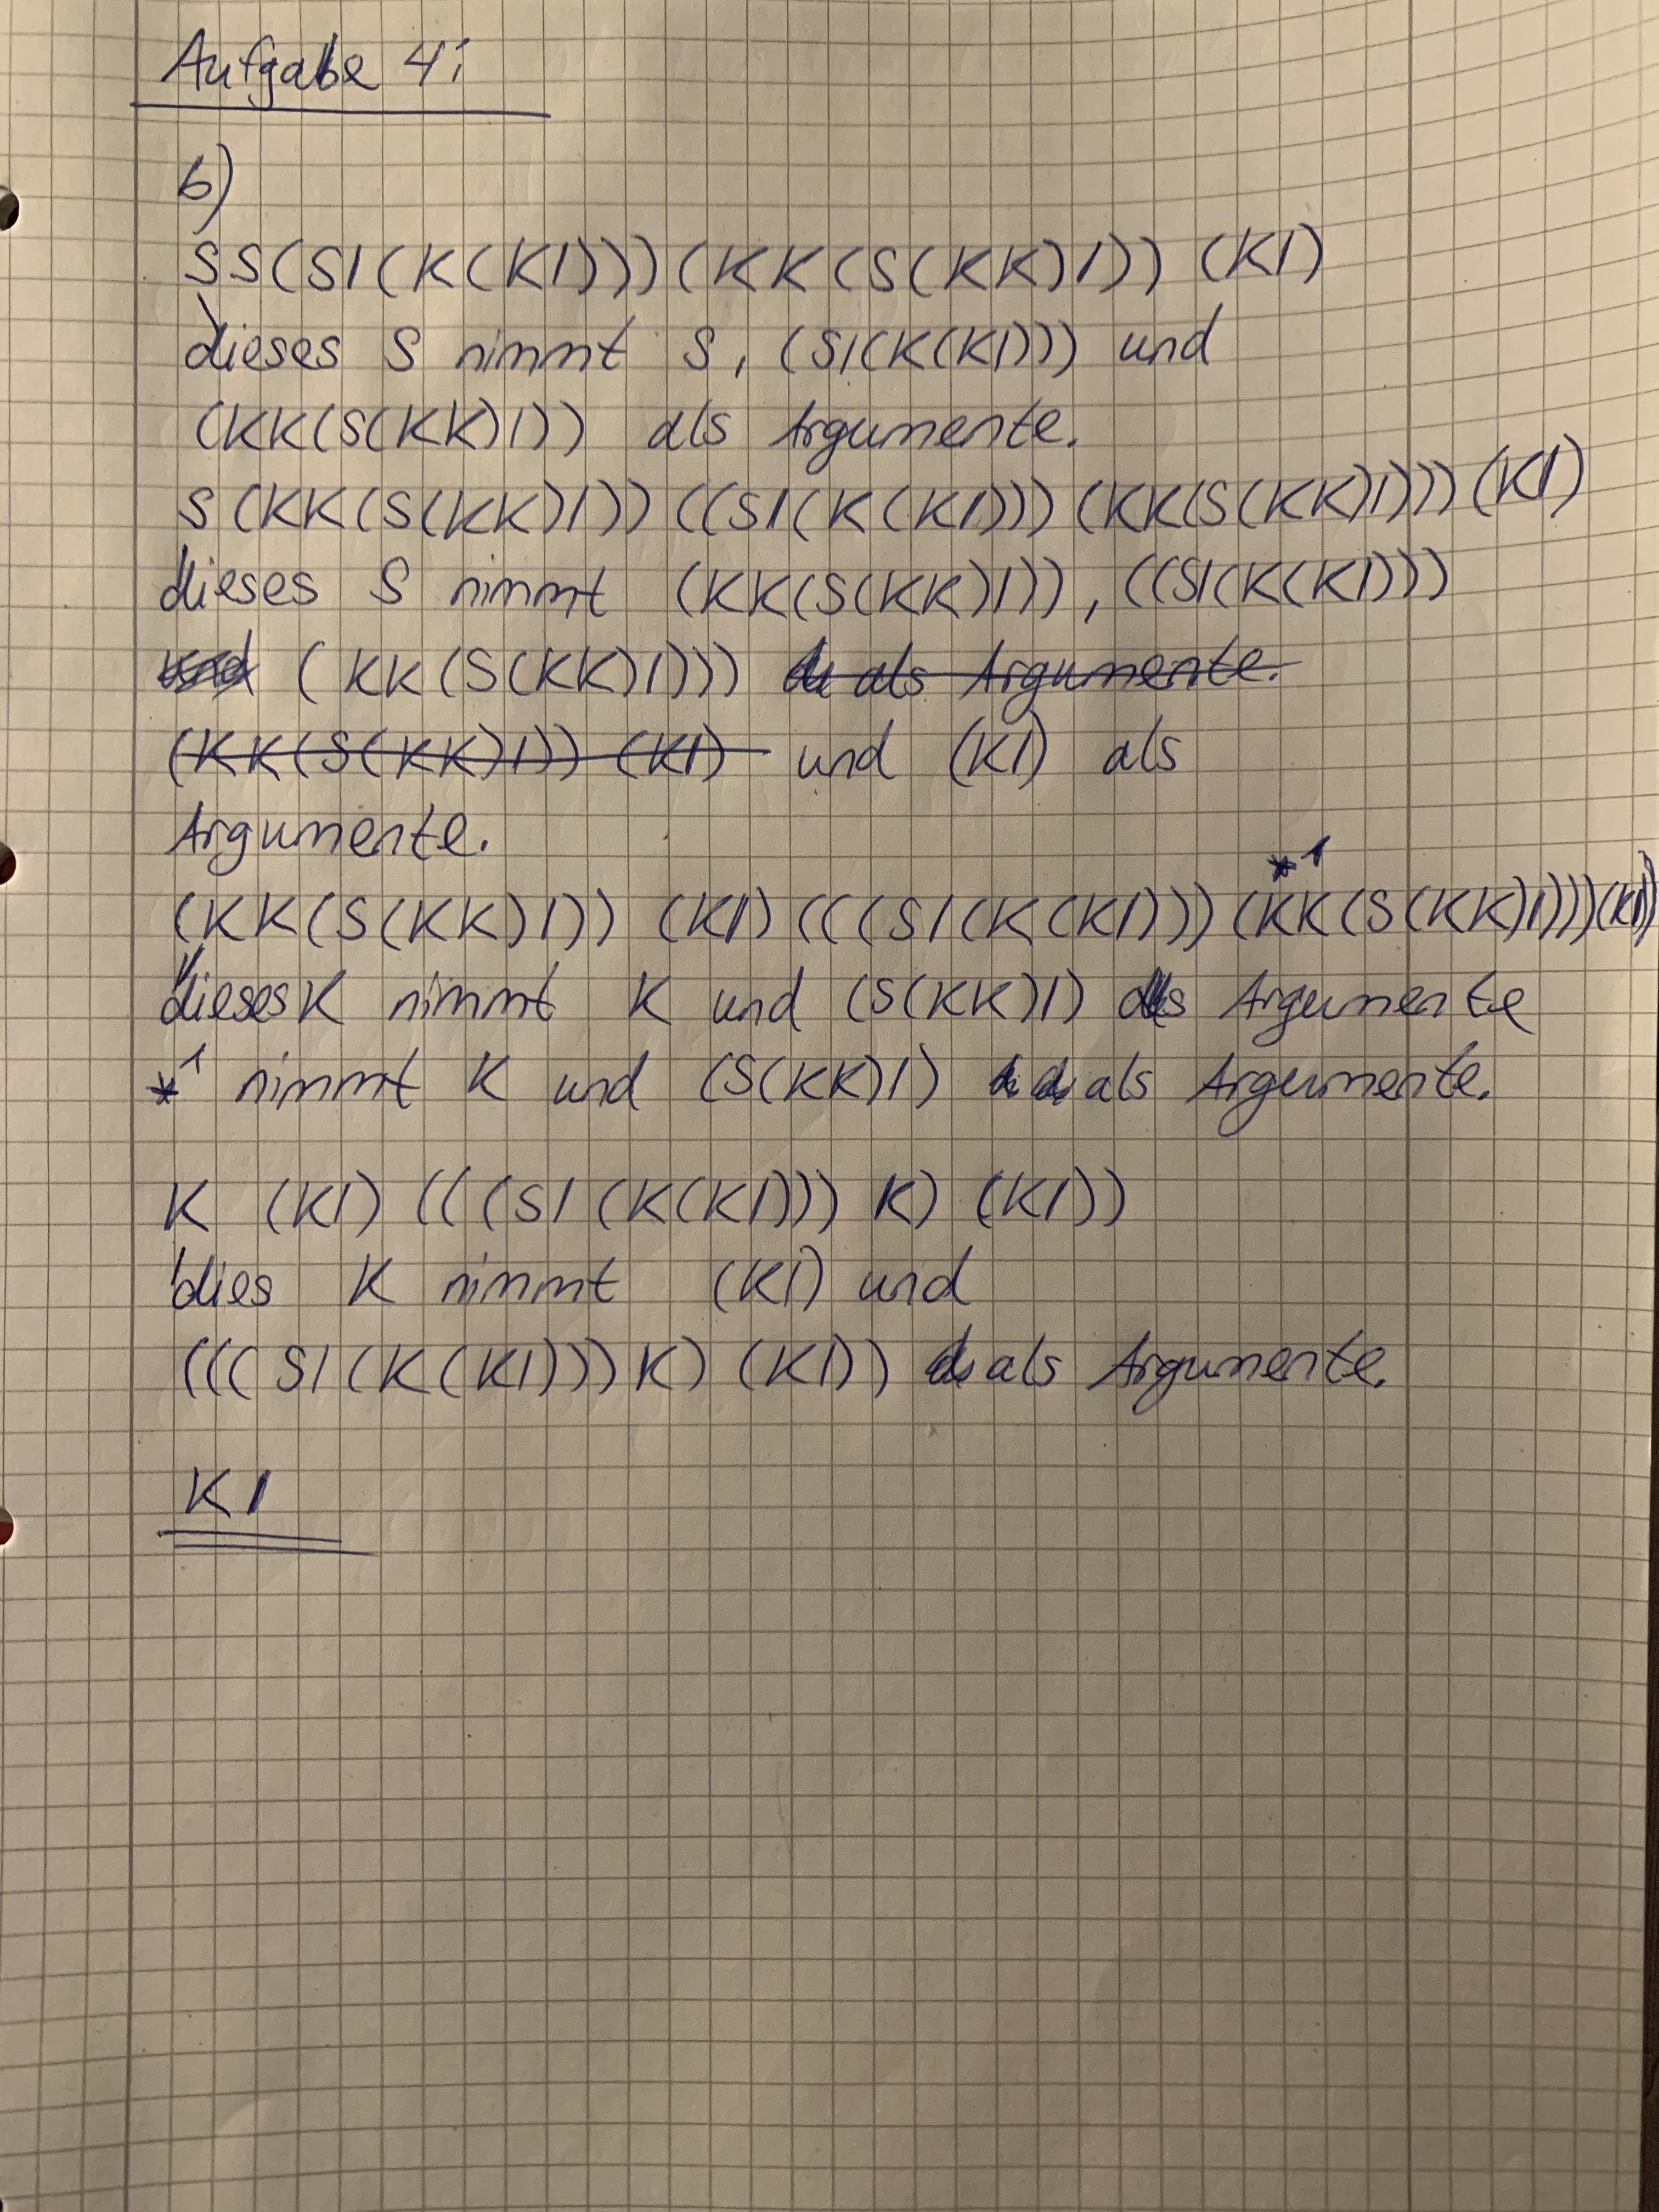 Aufgabe 4:
b)
SS(SI(K(KI)))(KK(S(KK)I)) (KI)
dieses S nimmt S, (SI(K(KI))) und
(KK(S(KK)I)) als Argumente.
S(KK(S(KK)I))((SI(K(KI)))(KK(S(KK)I)))(KI)
dieses S nimmt (KK(S(KK)I)), ((SI(K(KI)))
und (KK(S(KK)I))) als Argumente.
(KK(S(KK)I)) (KI) und (KI) als
Argumente.
*1
(KK(S(KK)I)) (KI) (((SI(K(KI)))(KK(S(KK)I)))(KI))
dieses K nimmt K und (S(KK)I) als Argumente
*1 nimmt K und (S(KK)I) als Argumente.
K (KI) (((SI(K(KI))) K) (KI))
dies K nimmt (KI) und
(((SI(K(KI)))K) (KI)) als Argumente.
KI